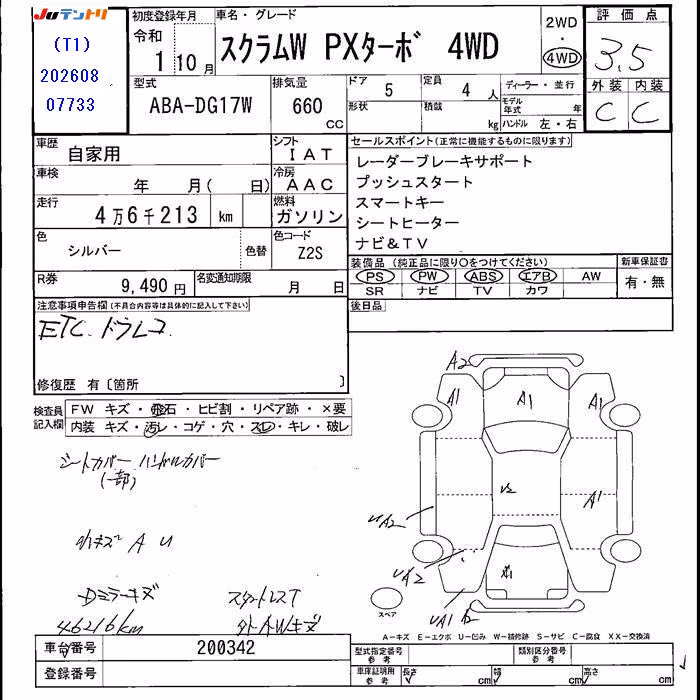 JUテントリ
(T1)
202608
07733
初度登録年月
令和
1 10 月
車名・グレード
スクラムW PXターボ 4WD
2WD
・
4WD
評価点
3.5
外装 内装
C C
型式
ABA-DG17W
排気量
660
CC
ドア 5
定員 4 人
形状
積載 kg
ディーラー・並行
モデル年式 年
ハンドル 左・右
車歴 自家用
シフト IAT
車検 年 月( 日)
冷房 AAC
走行 4万6千213 km
燃料 ガソリン
色 シルバー 色替
色コード Z2S
R券 9,490円
名変通知期限 月 日
セールスポイント(正常に機能するものに限ります)
レーダーブレーキサポート
プッシュスタート
スマートキー
シートヒーター
ナビ&TV
装備品(純正品に限り○をつけてください)
PS PW ABS エアB AW
SR ナビ TV カワ
新車保証書
有・無
後日品
注意事項申告欄(不具合内容等は具体的に記入して下さい)
ETC ドラレコ
修復歴 有〔箇所 〕
検査員記入欄
FW キズ・飛石・ヒビ割・リペア跡・×要
内装 キズ・汚レ・コゲ・穴・スレ・キレ・破レ
シートカバー ハンドルカバー
(一部)
小キズ A U
Dミラーキズ
スタートレスT
46216km
外AWキズ
A2
A1 A1 A1
U2
A1
UA2
UA2
A1
UA1
スペア
A-キズ E-エクボ U-凹み W-補修跡 S-サビ C-腐食 XX-交換済
車台番号 200342
登録番号
型式指定番号 参考
類別区分番号 参考
車庫証明用 参考
長さ cm
幅 cm
高さ cm